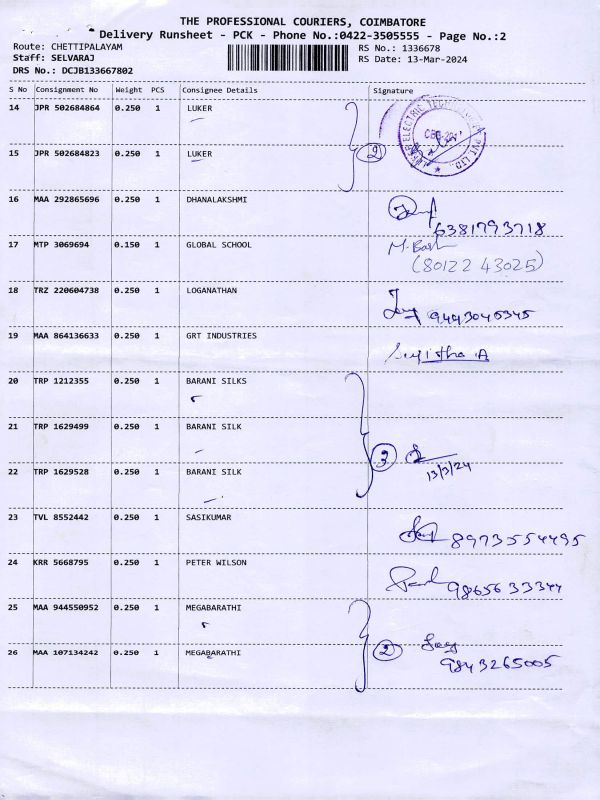 THE PROFESSIONAL COURIERS, COIMBATORE
Delivery Runsheet - PCK - Phone No.:0422-3505555 - Page No.:2
Route: CHETTIPALAYAM RS No.: 1336678
Staff: SELVARAJ RS Date: 13-Mar-2024
DRS No.: DCJB133667802
S No Consignment No Weight PCS Consignee Details Signature
14 JPR 502684864 0.250 1 LUKER
15 JPR 502684823 0.250 1 LUKER 2
16 MAA 292865696 0.250 1 DHANALAKSHMI
6381793718
17 MTP 3069694 0.150 1 GLOBAL SCHOOL M. Bash
(80122 43025)
18 TRZ 220604738 0.250 1 LOGANATHAN
9443045345
19 MAA 864136633 0.250 1 GRT INDUSTRIES
Sujitha A
20 TRP 1212355 0.250 1 BARANI SILKS
21 TRP 1629499 0.250 1 BARANI SILK
3
22 TRP 1629528 0.250 1 BARANI SILK 13/3/24
23 TVL 8552442 0.250 1 SASIKUMAR
8973554495
24 KRR 5668795 0.250 1 PETER WILSON
9865633344
25 MAA 944550952 0.250 1 MEGABARATHI
26 MAA 107134242 0.250 1 MEGABARATHI 2
9843265005